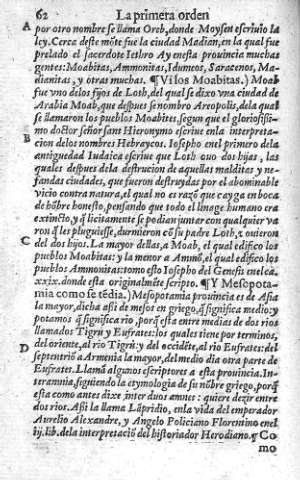 62 La primera orden
A por otro nombre se llama Oreb, donde Moysen escriuio la
ley. Cerca deste mõte fue la ciudad Madian, en la qual fue
prelado el sacerdote Iethro Ay en esta prouincia muchas
gentes: Moabitas, Ammonitas, Idumeos, Saracenos, Ma-
dianitas, y otras muchas. ¶ Vi los Moabitas.) Moab
fue vno delos fijos de Loth, del qual se dixo vna ciudad de
Arabia Moab, que despues se nombro Areopolis, dela qual
se llamaron los pueblos Moabites, segun que el gloriosissi-
mo doctor señor sant Hieronymo escriue enla interpreta-
B cion delos nombres Hebraycos. Iosepho enel primero dela
antiguedad Iudaica escriue que Loth ouo dos hijas, las
quales despues dela destrucion de aquellas malditas y ne-
fandas ciudades, que fueron destruydas por el abominable
vicio contra natura, el qual no es razõ que cayga en boca
de hõbre honesto, pensando que todo el linage humano era
extincto, y q̃ licitamente se podian juntar con qualquier va
ron q̃ les pluguiesse, durmieron cõ su padre Loth, y ouieron
C del dos hijos. La mayor dellas, a Moab, el qual edifico los
pueblos Moabitas: y la menor a Ammõ, el qual edifico los
pueblos Ammonitas: tomo esto Iosepho del Genesis enel ca.
xxix. donde esta originalmẽte scripto. ¶ Y Mesopota-
mia como se tẽdia.) Mesopotamia prouincia es de Asia
la mayor, dicha assi de mesos en griego, q̃ significa medio: y
potamos q̃ significa rio, porq̃ esta entre medias de dos rios
llamados Tigru y Eufrates: los quales tiene por terminos,
del oriente, al rio Tigrú: y del occidẽte, al rio Eufrates: del
D septentriõ a Armenia la mayor, del medio dia otra parte de
Eufrates. Llamã algunos escriptores a esta prouincia. In-
teramnia, siguiendo la etymologia de su nõbre griego, porq̃
esta como antes dixe, inter duos amnes: quiere dezir entre
dos rios. Assi la llama Lãpridio, enla vida del emperador
Aurelio Alexandre, y Angelo Policiano Florentino enel
iij. lib. dela interpretaciõ del historiador Herodiano. ¶ Co
mo